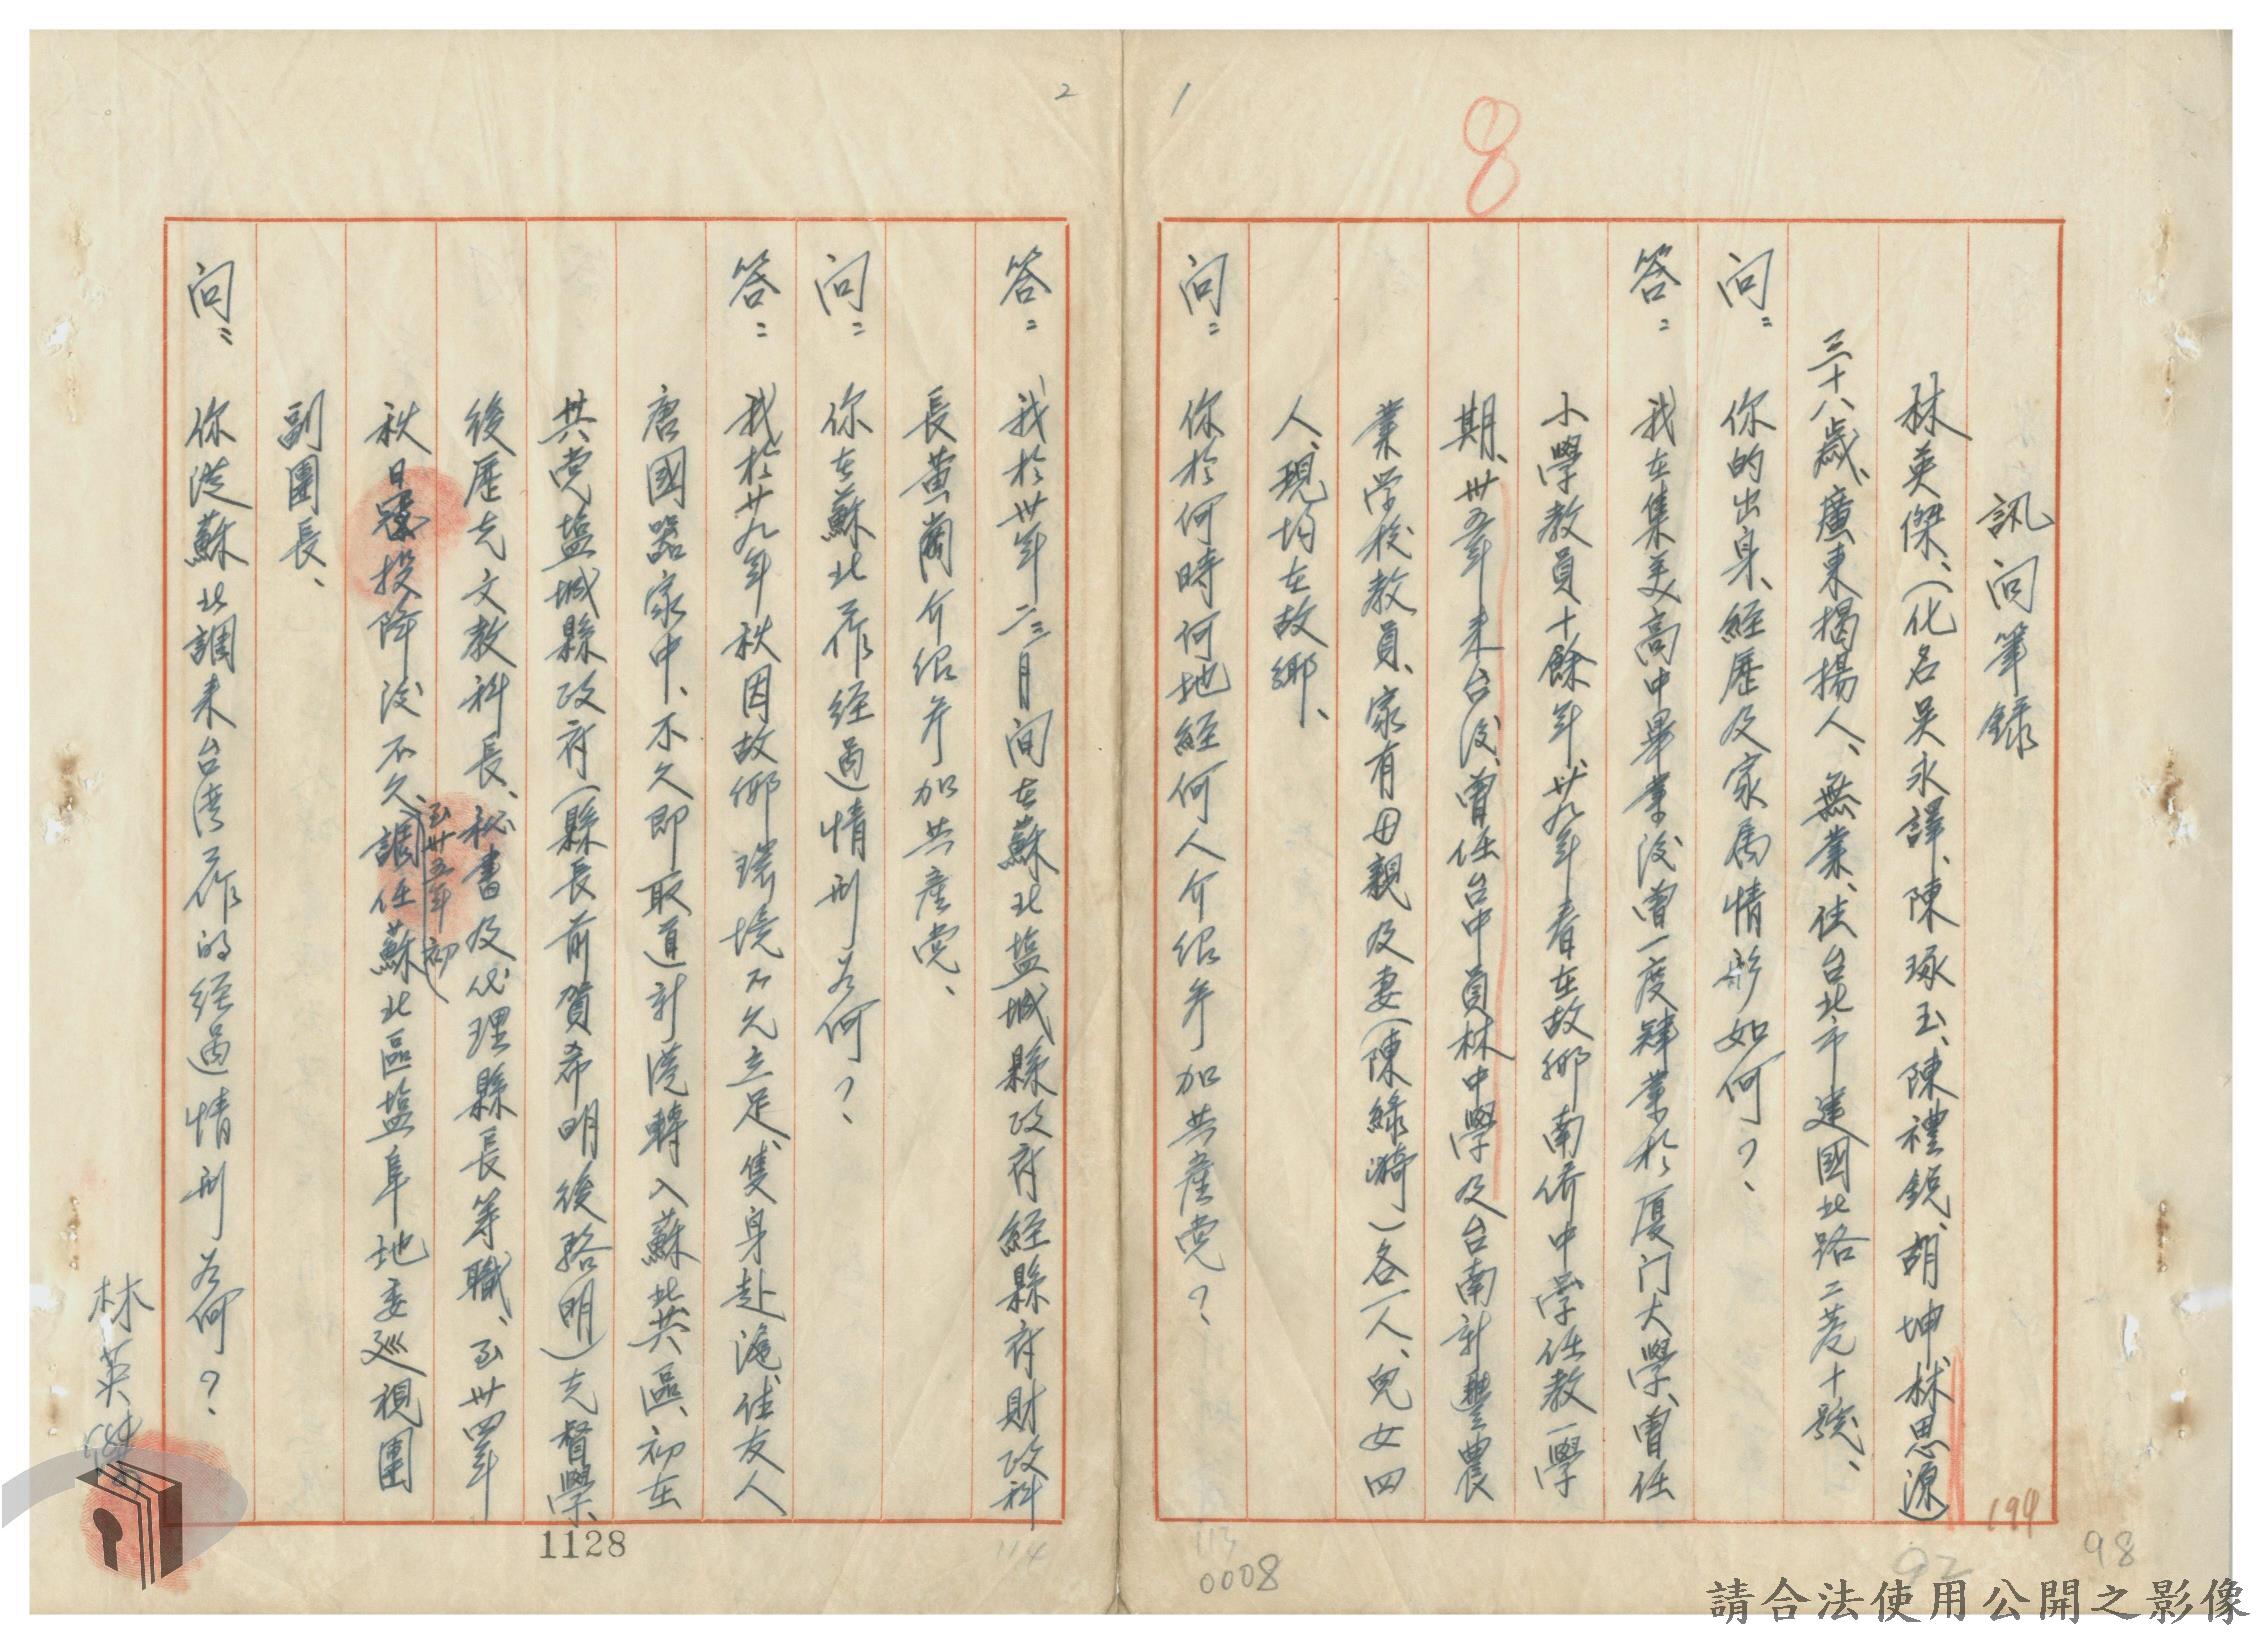 1
8
訊问筆錄
林英傑、(化名吴永譯、陳琢玉、陳禮銳、胡坤、林思源)
三十八歲、廣東揭揚人、無業、住台北市建國北路二巷十號、
问：你的出身、經歷及家属情形如何？、
答：我在集美高中畢業後曾一度肄業於厦门大學、曾任
小學教員十餘年、廿九年春在故鄉南侨中学任教一學
期、卅五年来台後、曾任台中員林中學及台南新豐農
業学校教員、家有母親及妻(陳綠漪)各一人、兒女四
人、現均在故鄉、
问：你於何時何地經何人介绍参加共產党？、
199
98
92
113
0008
2
答：我於卅年二三月间在蘇北塩城縣政府經縣府財政科
長黄萄介绍参加共產党、
问：你在蘇北工作經過情形为何？、
答：我於廿九年秋因故鄉環境不允立足、隻身赴滬、住友人
唐國器家中、不久即取道新港轉入蘇北共區、初在
共党塩城縣政府(縣長前賀希明後駱明)充督學、
後歷充文教科長、秘書及代理縣長等職、至卅四年
至卅五年初
秋日寇投降後不久、調任蘇北區塩阜地委巡視團
副團長、
问：你從蘇北調来台湾工作的经過情形为何？、
林英傑
1128
114
請合法使用公開之影像